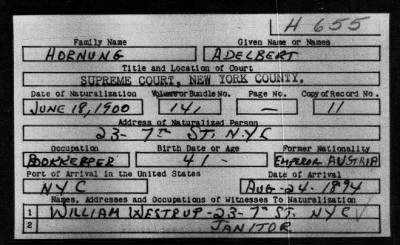 H 655
Family Name Given Name or Names
HORNUNG ADELBERT
Title and Location of Court
SUPREME COURT, NEW YORK COUNTY.
Date of Naturalization Volume or Bundle No. Page No. Copy of Record No.
JUNE 18, 1900 141 — 11
Address of Naturalized Person
23- 7TH ST. N.Y.C
Occupation Birth Date or Age Former Nationality
BOOKKEEPER 41 - EMPEROR AUSTRIA
Port of Arrival in the United States Date of Arrival
NYC AUG-24-1894
Names, Addresses and Occupations of Witnesses To Naturalization
1 WILLIAM WESTRUP-23-7TH ST. NYC
2 JANITOR